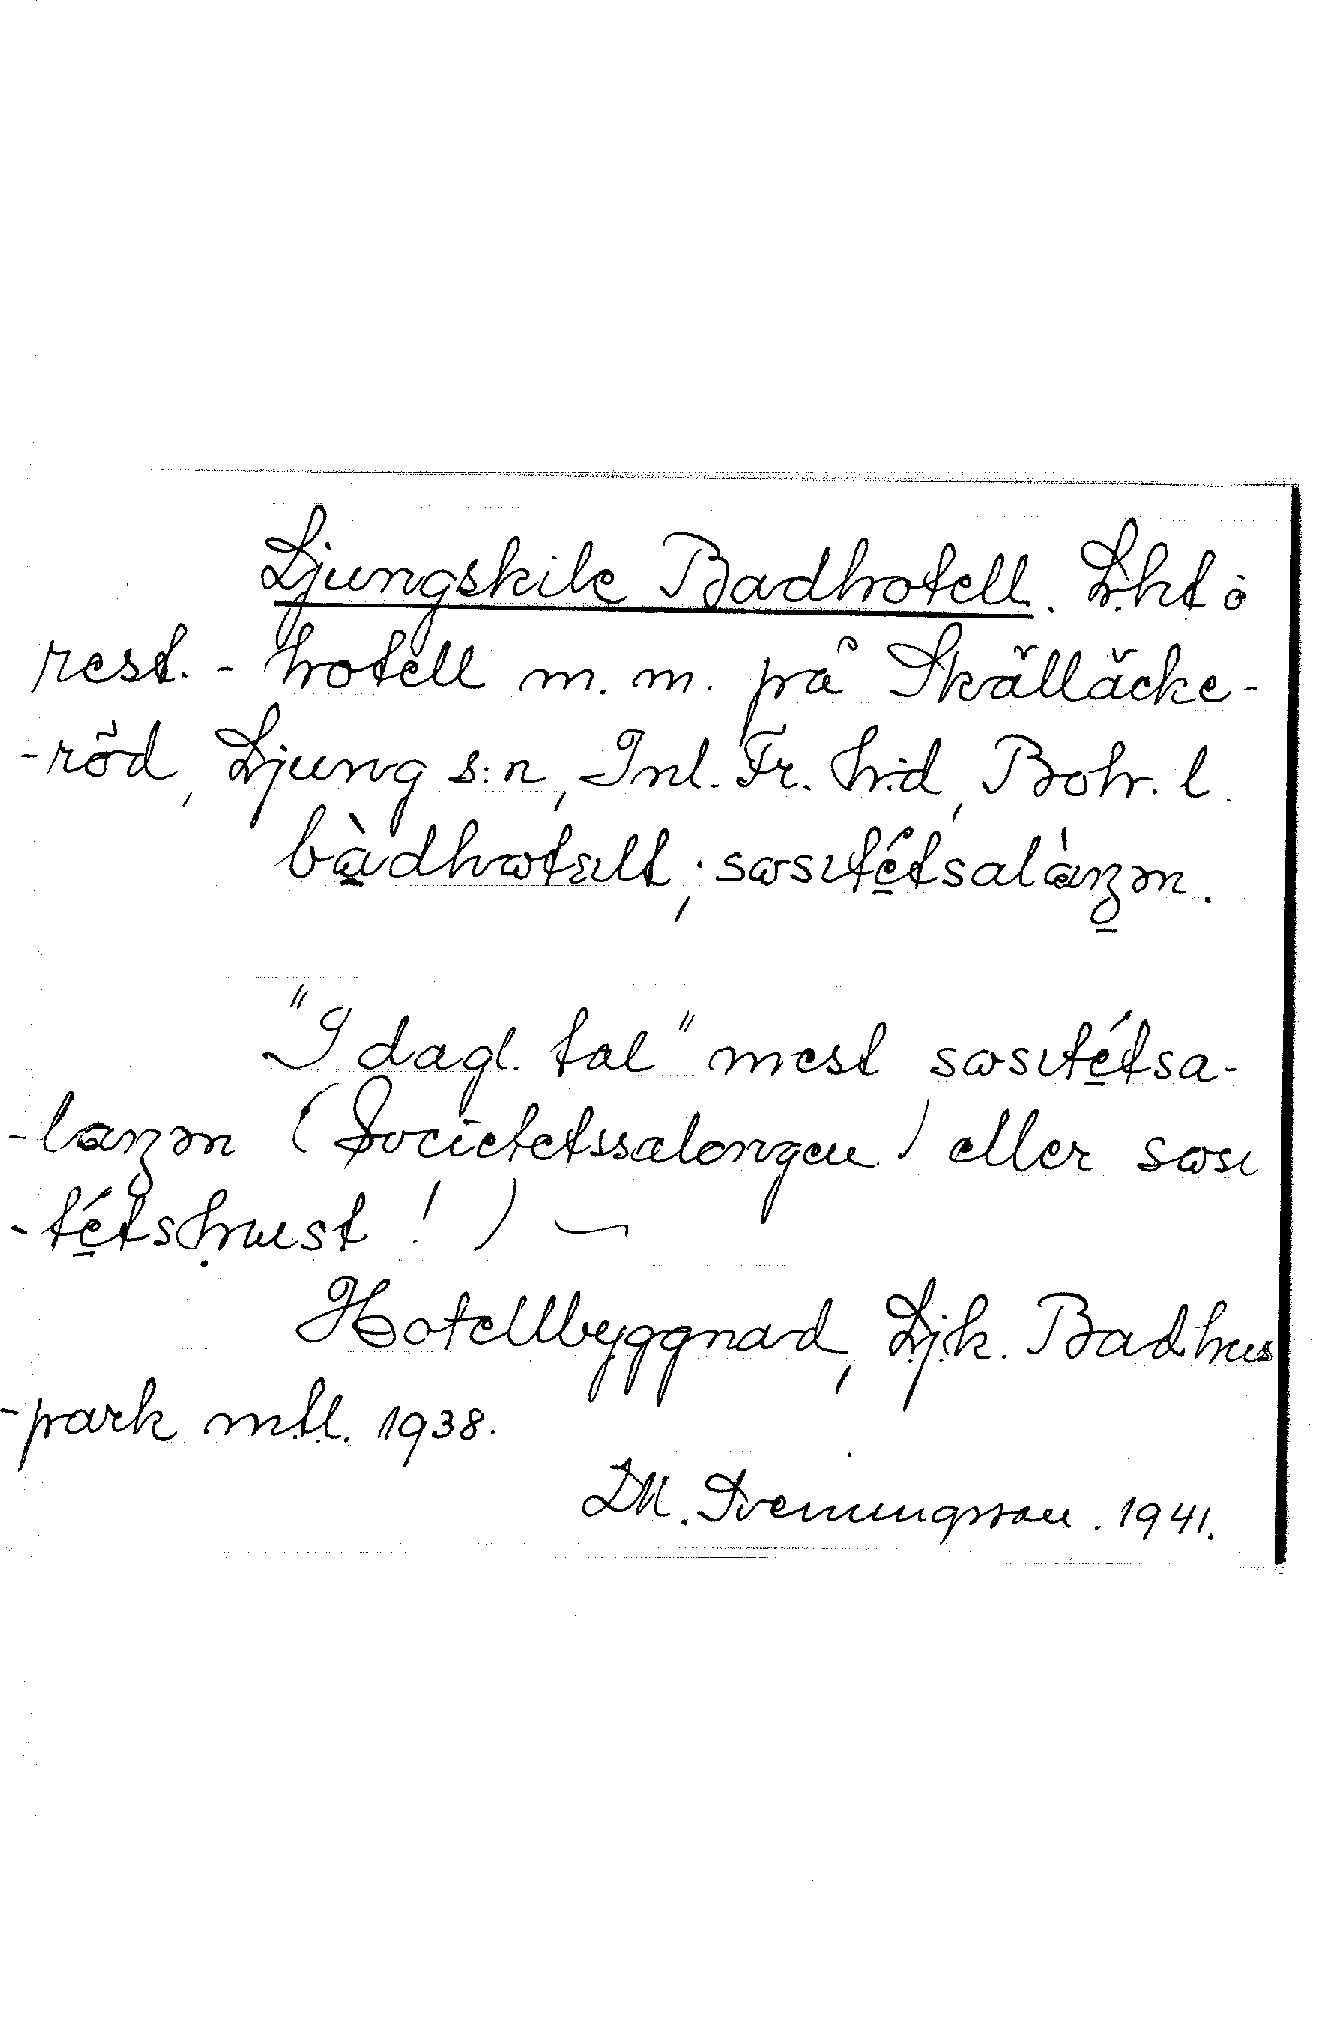 Ljungskile Badhotell. Lht o
rest. - hotell m. m. på Skälläcke-
-röd, Ljung s:n, Inl. Fr. h:d, Boh. l.
bàdhωtεllt; sωsıtétsalàŋən.
"I dagl. tal" mest sωsıtétsa-
-laŋən (Societetssalongen) eller sωsı
-tétshust! ) —
Hotellbyggnad, Ljk. Badhus
-park mtl. 1938.
DM. Sveningsson. 1941.